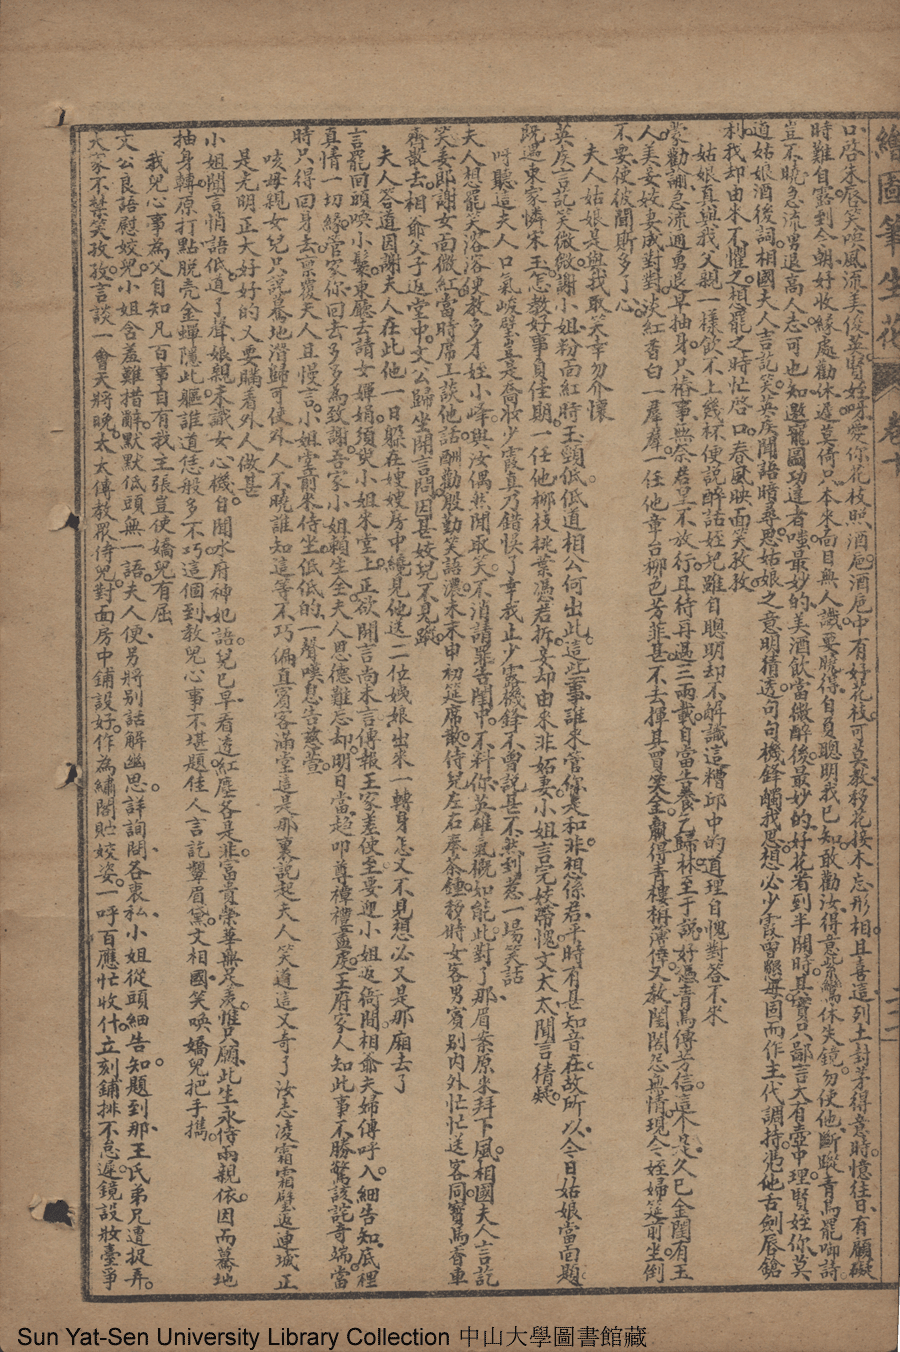 繪圖筆生花
卷十
口啓朱唇笑喚風流美俊英賢姪呀愛你花枝照酒巵酒巵中有好花枝可莫教移花接木忘形相且喜這列土封茅得意時憶往日有願礙
時難自露到今朝好收緣處勸休遲莫倚只本來面目無人識要曉得自負聰明我已知敢勸汝得意紫鸞休失鏡勿使他斷蹤青鳥罷啣詩
豈不曉急流勇退高人志可也知邀寵圖功達者嗤最妙的美酒飲當微醉後最妙的好花看到半開時其實只鄙言大有壺中理賢姪你莫
道姑娘酒後詞相國夫人言訖笑英侯聞語暗尋思姑娘之意明猜透句句機鋒觸我思想必少霞曾懇母因而作主代調持憑他舌劍唇鎗
利我却由來不懼之想罷之時忙啓口春風映面笑孜孜
姑娘真與我父親一樣飲不上幾杯便說醉話姪兒雖自聰明却不解識這糟邱中的道理自愧對答不來
蒙勸諭急流適勇退早抽身只樁事無奈君王不放行且待再過三兩載自當告養乞歸林至于說好憑青鳥傳芳信言不是久已金閨有玉
人美妾妓妻成對對淡紅香白一羣羣一任他章台柳色芳菲甚不去揮其買笑金贏得青樓稱薄倖又教閨閣怨無情現今姪婦筵前坐倒
不要使彼聞斯多了心
夫人姑娘是與我取笑幸勿介懷
英侯言訖笑微微謝小姐粉面紅時玉頸低低道相公何出此這些事誰來管你是和非想係君平時有甚知音在故所以今日姑娘當面題
既過東家憐宋玉怎教好事負佳期一任他柳枝桃葉憑君折妾却由來非妬妻小姐言完妝帶愧文太太聞言猜疑
呀聽這夫人口氣峻璧甚是喬妝少霞真乃錯悞了幸我止少露機鋒不曾說甚不然到惹一場笑話
夫人想罷笑溶溶便教多才姪小峰與汝偶然閒取笑不消請罪告閨中不料你英雄氣概如能此對了那眉案原來拜下風相國夫人言訖
笑姜郎謝女面微紅當時席上談他話酬勸殷勤笑語濃未末申初筵席散侍兒左右奉茶鍾移時女客男賓别内外忙忙送客同寶馬香車
齊散去相爺父子返堂中文公歸坐開言問因甚姣兒不見蹤
夫人答道因謝夫人在此他一日躲在嫂嫂房中纔見他送二位娥娘出來一轉身怎又不見想必又是那廂去了
言罷回頭喚小鬟東廳去請女嬋娟須臾小姐來堂上正欲開言尚未言傳報王家差使至要迎小姐返衙間相爺夫婦傳呼入細告知底裡
真情一切緣管家你回去多多為致謝吾家小姐賴生全夫人恩德難忘却明日當趨叩尊樟禮盡虔王府家人知此事不勝驚該詫奇端當
時只得回身去禀覆夫人且慢言小姐堂前來侍坐低低的一聲嘆息告慈萱
咳母親女兒只說驀地潛歸可使外人不曉誰知這等不巧偏直賓客滿堂這是那裏說起夫人笑道這又奇了汝志凌霜霜壁返連城正
是光明正大好好的又要瞞着外人做甚
小姐聞言悄語低道了聲娘親未識女心機自聞水府神妃語兒已早看透紅塵各是非富貴榮華無足羨惟只願此生永侍兩親依因而驀地
抽身轉原打點脫壳金蟬隱此軀誰道恁般多不巧這個到教兒心事不堪題佳人言訖顰眉黛文相國笑喚嬌兒把手攜
我兒心事為父自知凡百事自有我主張豈使嬌兒有屈
文公良語慰姣兒小姐含羞難措辭默默低頭無一語夫人便另將别話解幽思詳詢問各衷私小姐從頭細告知題到那王氏弟兄遭捉弄
大家不禁笑孜孜言談一會天將晚太太傳教衆侍兒對面房中鋪設好作為繡閣貯姣姿一呼百應忙收什立刻鋪排不怠遲鏡設妝臺爭
Sun Yat-Sen University Library Collection 中山大學圖書館藏